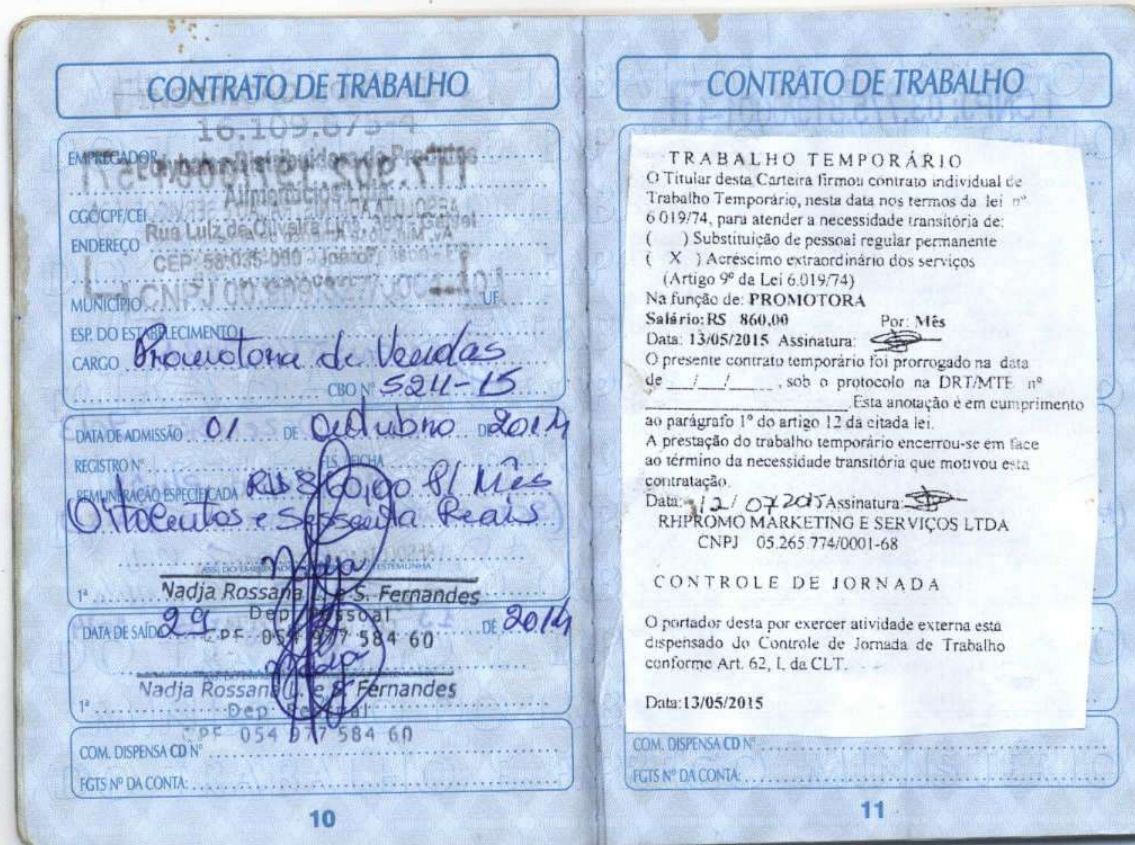 CONTRATO DE TRABALHO
16.109.873-4
EMPREGADOR Distribuidora de Produtos
Alimentícios Ltda
CGC/CPF/CEI
ENDEREÇO Rua Luiz de Oliveira Lins
CEP: 58.035-
CNPJ 00.
MUNICÍPIO UF
ESP. DO ESTABELECIMENTO
CARGO Promotora de Vendas
CBO Nº 5211-15
DATA DE ADMISSÃO 01 DE Outubro DE 2014
REGISTRO Nº FLS./FICHA
REMUNERAÇÃO ESPECIFICADA R$ 860,00 P/ Mês
Oitocentos e Sessenta Reais
1ª Nadja Rossana L. e S. Fernandes
Dep Pessoal
DATA DE SAÍDA 29 DE 2014
CPF 054 977 584 60
Nadja Rossana L. e S. Fernandes
1ª Dep Pessoal
CPF 054 977 584 60
COM. DISPENSA CD Nº
FGTS Nº DA CONTA:
10
CONTRATO DE TRABALHO
TRABALHO TEMPORÁRIO
O Titular desta Carteira firmou contrato individual de
Trabalho Temporário, nesta data nos termos da lei nº
6.019/74, para atender a necessidade transitória de:
( ) Substituição de pessoal regular permanente
( X ) Acréscimo extraordinário dos serviços
(Artigo 9º da Lei 6.019/74)
Na função de: PROMOTORA
Salário: R$ 860,00 Por: Mês
Data: 13/05/2015 Assinatura:
O presente contrato temporário foi prorrogado na data
de __/__/____, sob o protocolo na DRT/MTE nº
____________________.Esta anotação é em cumprimento
ao parágrafo 1º do artigo 12 da citada lei.
A prestação do trabalho temporário encerrou-se em face
ao término da necessidade transitória que motivou esta
contratação.
Data: 12/07/2015 Assinatura:
RHPROMO MARKETING E SERVIÇOS LTDA
CNPJ 05.265.774/0001-68
CONTROLE DE JORNADA
O portador desta por exercer atividade externa está
dispensado do Controle de Jornada de Trabalho
conforme Art. 62, I, da CLT.
Data:13/05/2015
COM. DISPENSA CD Nº
FGTS Nº DA CONTA:
11